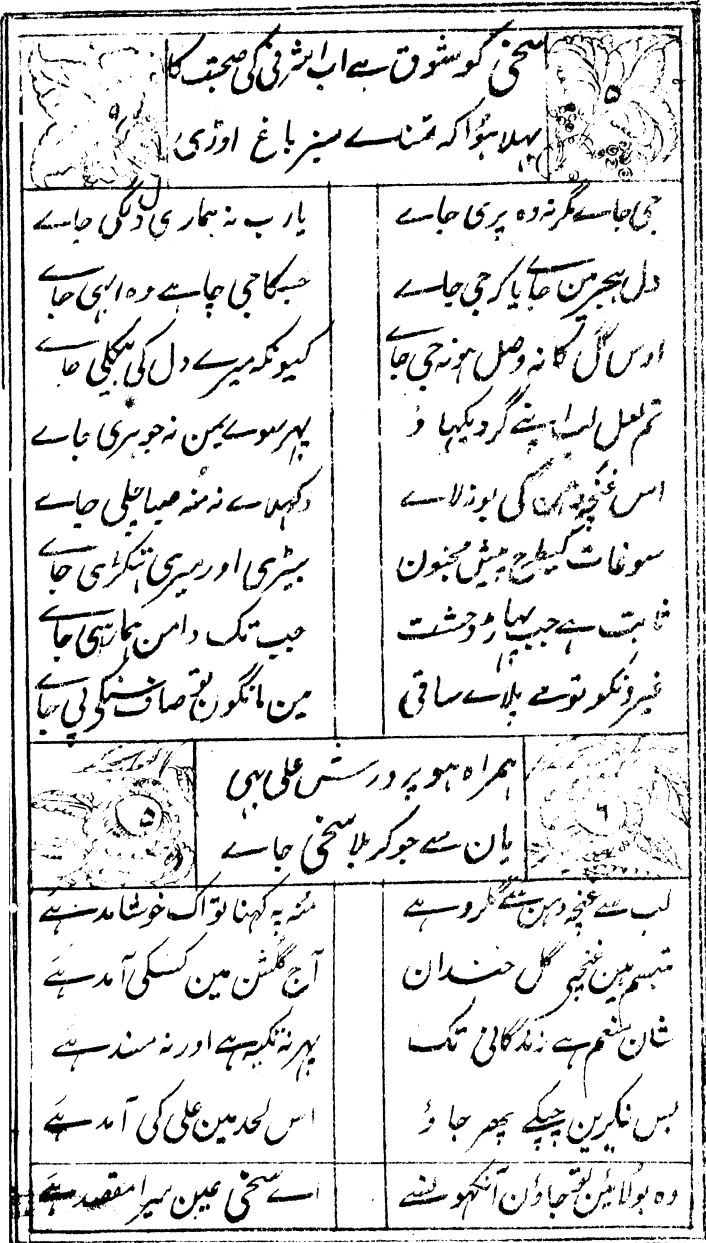 سخی کو شوق ہے اب اشرفی کی صحبت کا
بہلا ہوا کہ تمنائے سبز باغ اوڑی
جی جاے مگر نہ وہ پری جاے
یارب نہ ہماری دلگی جاے
دل ہجر مین جاے یا کہ جی جاے
جسکا جی چاہے وہ ابہی جاے
اوس گل کا نہ وصل ہو نہ جی جاے
کیونکہ میرے دل کی بیکلی جاے
تم لعل لب اپنے گر دیکہاؤ
پہر سوے یمن نہ جوہری جاے
اس غنچہ دہن کی بو نہ لاے
دکہلاے نہ منہ صبا چلی جاے
سوغات کیطرح پیش مجنون
بیڑی اور میری ہتکڑی جاے
ثابت ہے جیب پہاڑ وحشت
جب تک دامن ہمارا ہی جاے
غیرونکو تو مے پلاے ساقی
مین مانگون تو صاف سنکی پی جاے
ہمراہ ہو پرورش علی بہی
یان سے جو کربلا سخی جاے
لب سے غنچہ دہن سے گلرو ہے
منہ پہ کہنا تو اک خوشامد ہے
متبسم ہین غنچے گل خندان
آج گلشن مین کسکی آمد ہے
شان منعم ہے زندگانی تک
پہر نہ تکیہ ہے اور نہ مسند ہے
بس نکیرین چپکے پھر جاؤ
اس لحد مین علی کی آمد ہے
وہ بولائین تو جاؤن آنکہون سے
اے سخی عین میرا مقصد ہے